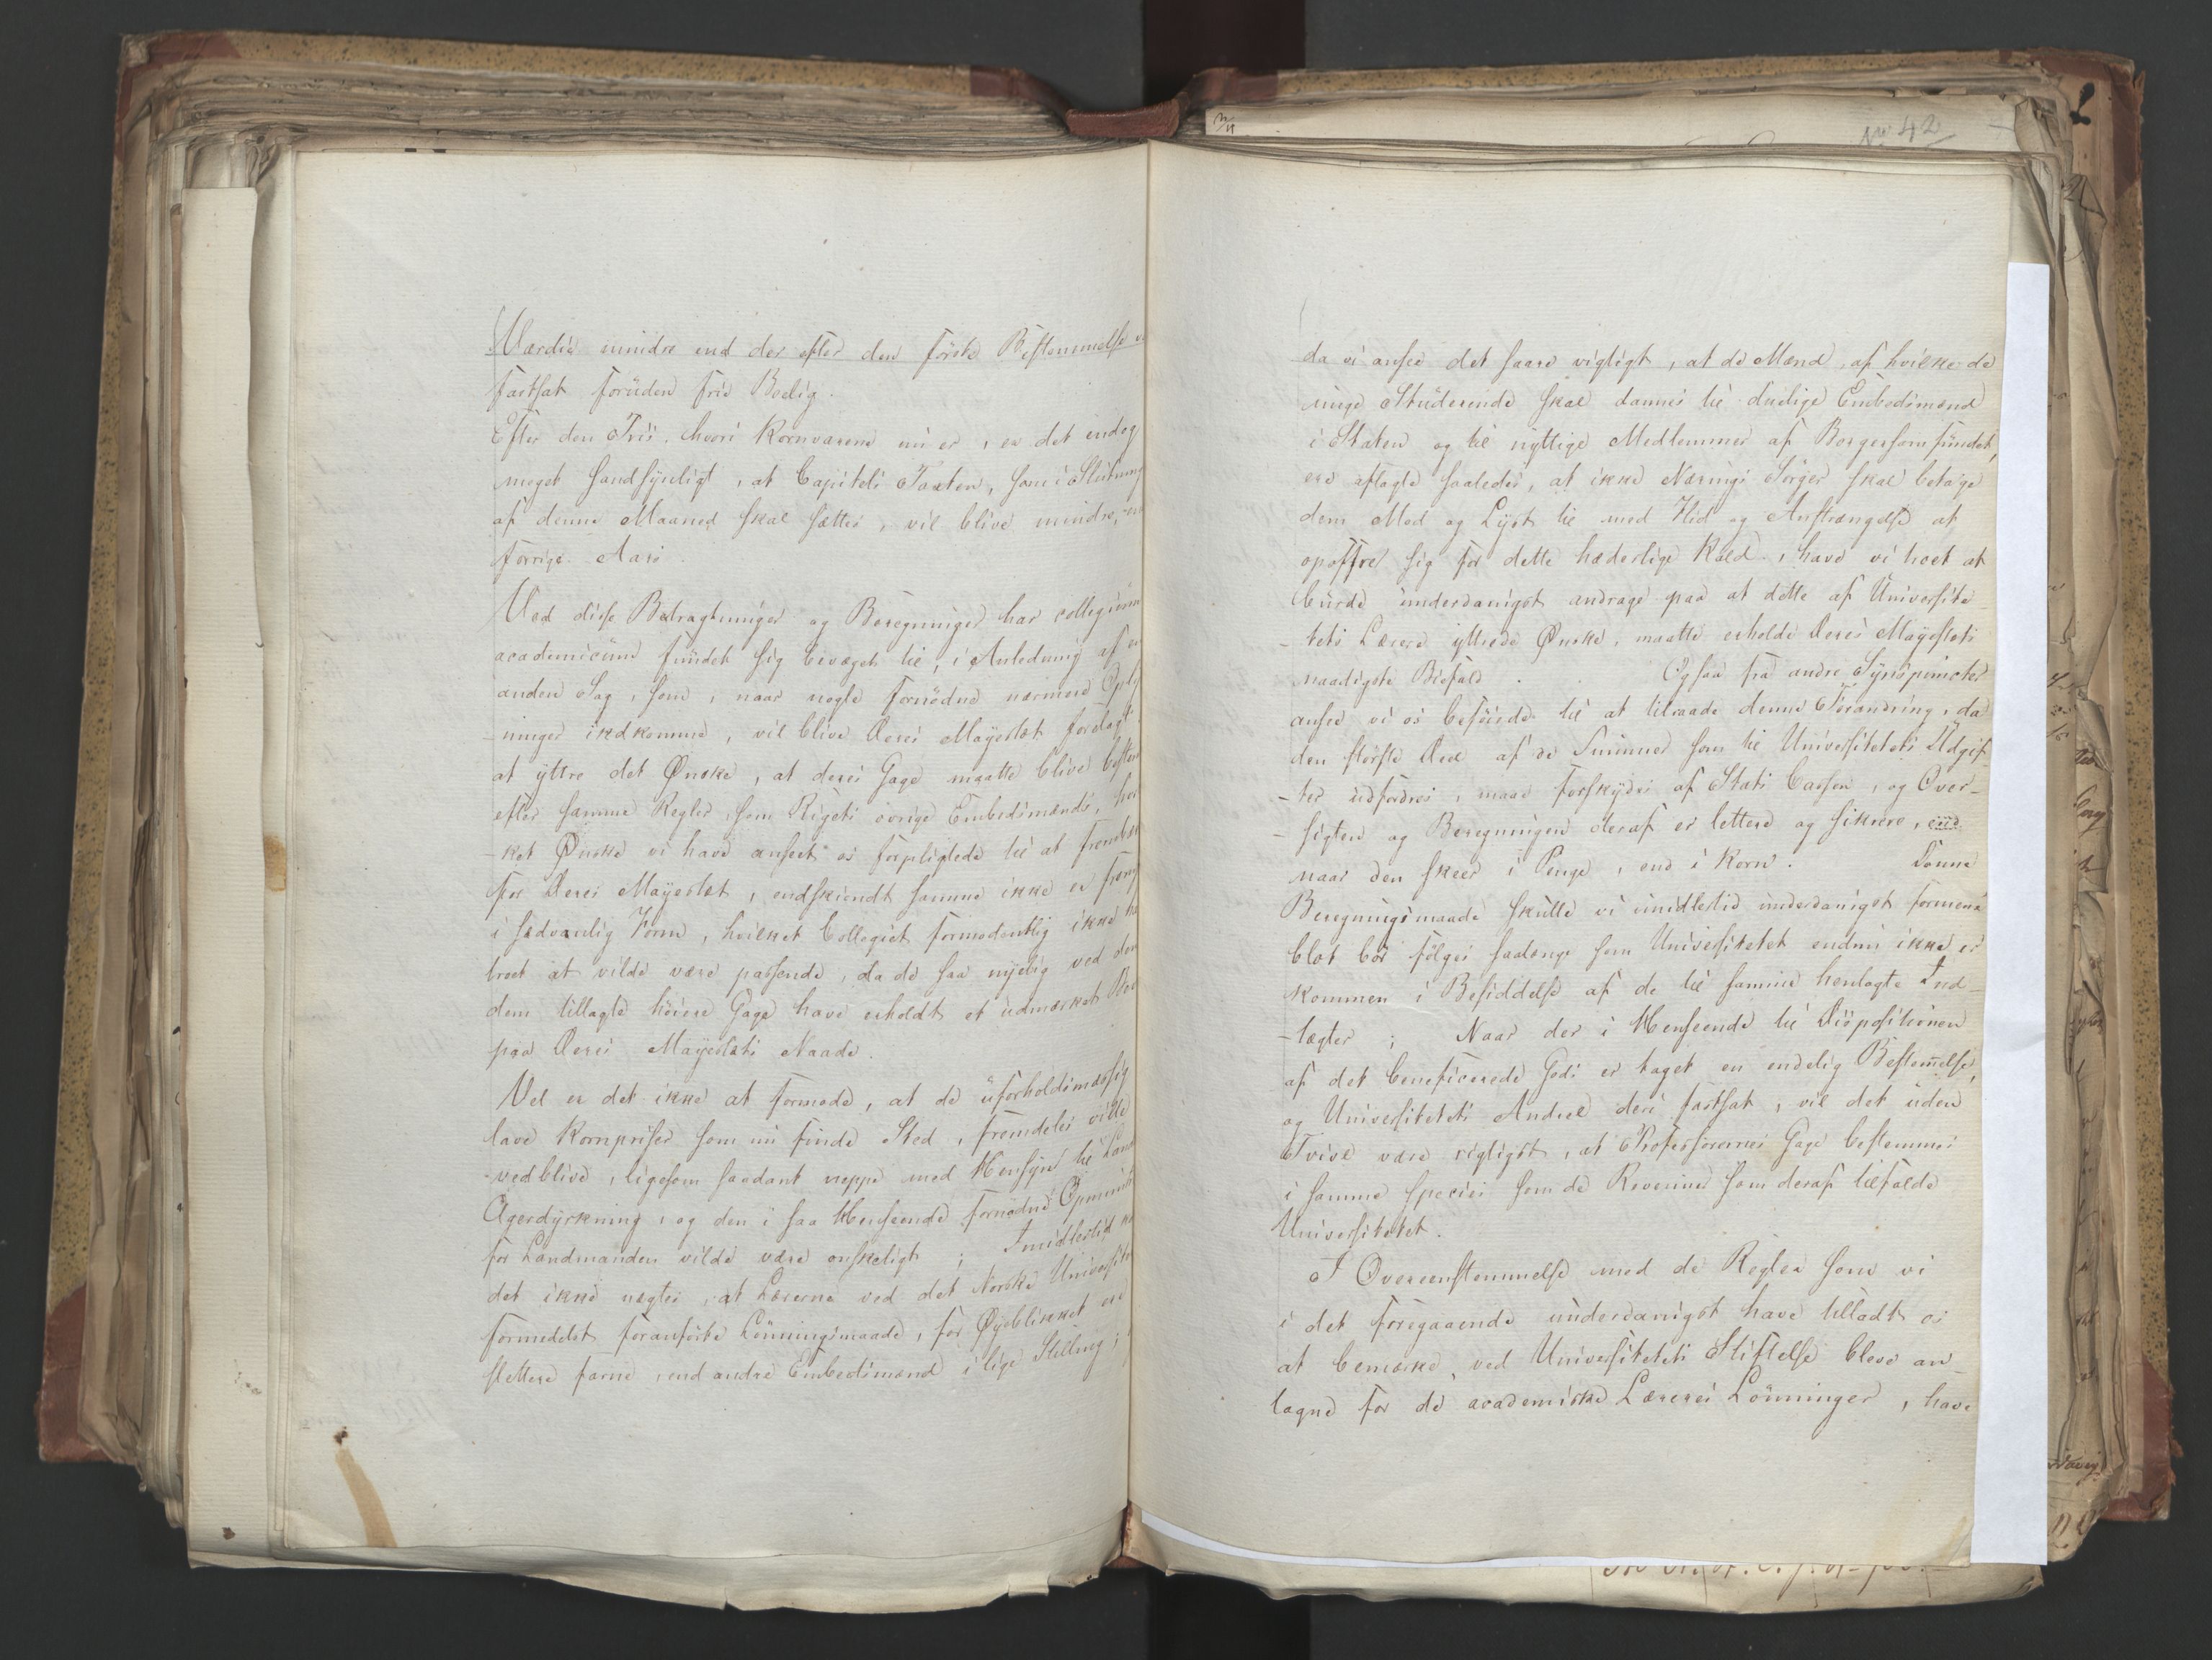 Værdie mindre end der efter den förste Bestemmelse
fastsat foruden frie Bolig.
Efter den Priis, hvori Kornvarene nu er, er det endog
meget sandsynligt, at Capitels Taxten, som i Slutning
af denne Maaned skal sættes, vil blive mindre, end
forrige Aars.
Ved disse Betragtninger og Beregninger har collegium
academicum fundet sig bevæget til, i Anledning af en
anden Sag, som, naar nogle fornødne nærmere Oply
-ninger indkomme, vil blive Deres Mayestæt forelagt
at yttre det Ønske, at deres Gage maatte blive bestem
efter samme Regler, som Rigets övrige Embedsmænds, hvil
-ket Ønske vi have anseet os forpligtede til at frembær
for Deres Mayestæt, endskiøndt samme ikke er frem
i sædvanlig Form, hvilket Collegiet formodentlig ikke ha
troet at vilde være passende, da de saa nyelig ved den
dem tillagte höiere Gage have erholdt et udmærket Be
paa Deres Mayestæts Naade.
Vel er det ikke at formode, at de uforholdsmæssig
lave Kornpriser som nu finde Sted, fremdeles ville
vedblive, ligesom saadant neppe med Hensyn til Land
Agerdyrkning, og den i saa Henseende fornødne Opmunt
for Landmanden vilde være onskeligt; Imidlertid
det ikke nægtes, at Lærerne ved det Norske Universitet
formedelst foranförte Lönningsmaade, for Øyeblikket ere
slettere farne, end andre Embedsmænd i lige Stilling;
N 42
da vi ansee det saare vigtigt, at de Mænd, af hvilke de
unge Studerende skal dannes til duelige Embedsmænd
i Staten og til nyttige Medlemmer af Borgersamfundet,
ere aflagte saaledes, at ikke Nærings Sorger skal betage
dem Mod og Lyst til med Flid og Anstrængelse at
opoffre sig for dette hæderlige Kald, have vi troet at
burde underdanigst andrage paa at dette af Universite
-tets Lærere yttrede Ønske, maatte erholde Deres Mayestæts
naadigste Biefald. Ogsaa fra andre Synspuncter
ansee vi os beföiede til at tilraade denne Forandring, da
den störste Deel af de Summer som til Universitetets Udgif
-ter udfordres, maae forskydes af Stats Cassen, og Over-
-sigten og Beregningen deraf er lettere og sikrere,
naar den skeer i Penge, end i Korn. Denne
Beregningsmaade skulle vi imidlertid underdanigst formene
blot bör fölges saalænge som Universitetet endnu ikke er
kommen i Besiddelse af de til samme henlagte Ind-
-tægter; Naar der i Henseende til Dispositionen
af det beneficerede Gods er taget en endelig Bestem̅else,
og Universitetets Andeel deri fastsat, vil det uden
Tvivl være rigtigst, at Professorernes Gage bestemmes
i samme species som de Revenuer som deraf tilfalde
Universitetet.
I Overeenstemmelse med de Regler som vi
i det foregaaende underdanigst have tilladt os
at bemærke, ved Universitetets Stiftelse bleve an-
tagne for de academiske Læreres Lönninger, have